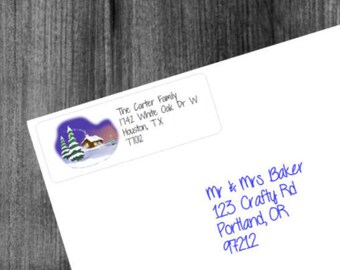 The Carter Family
1742 White Oak Dr W
Houston, TX
77012
Mr & Mrs Baker
123 Crafty Rd
Portland, OR
97212